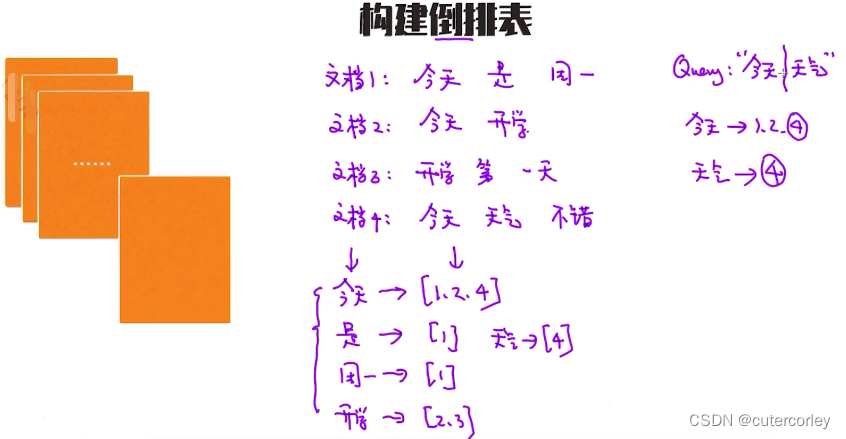 构建倒排表
文档1: 今天 是 周一
文档2: 今天 开学
文档3: 开学 第 一天
文档4: 今天 天气 不错
↓ ↓
今天 → [1.2.4]
是 → [1] 天气→[4]
周一→[1]
开学→[2.3]
Query: "今天|天气"
今天→1.2.④
天气→④
......
CSDN @cutercorley